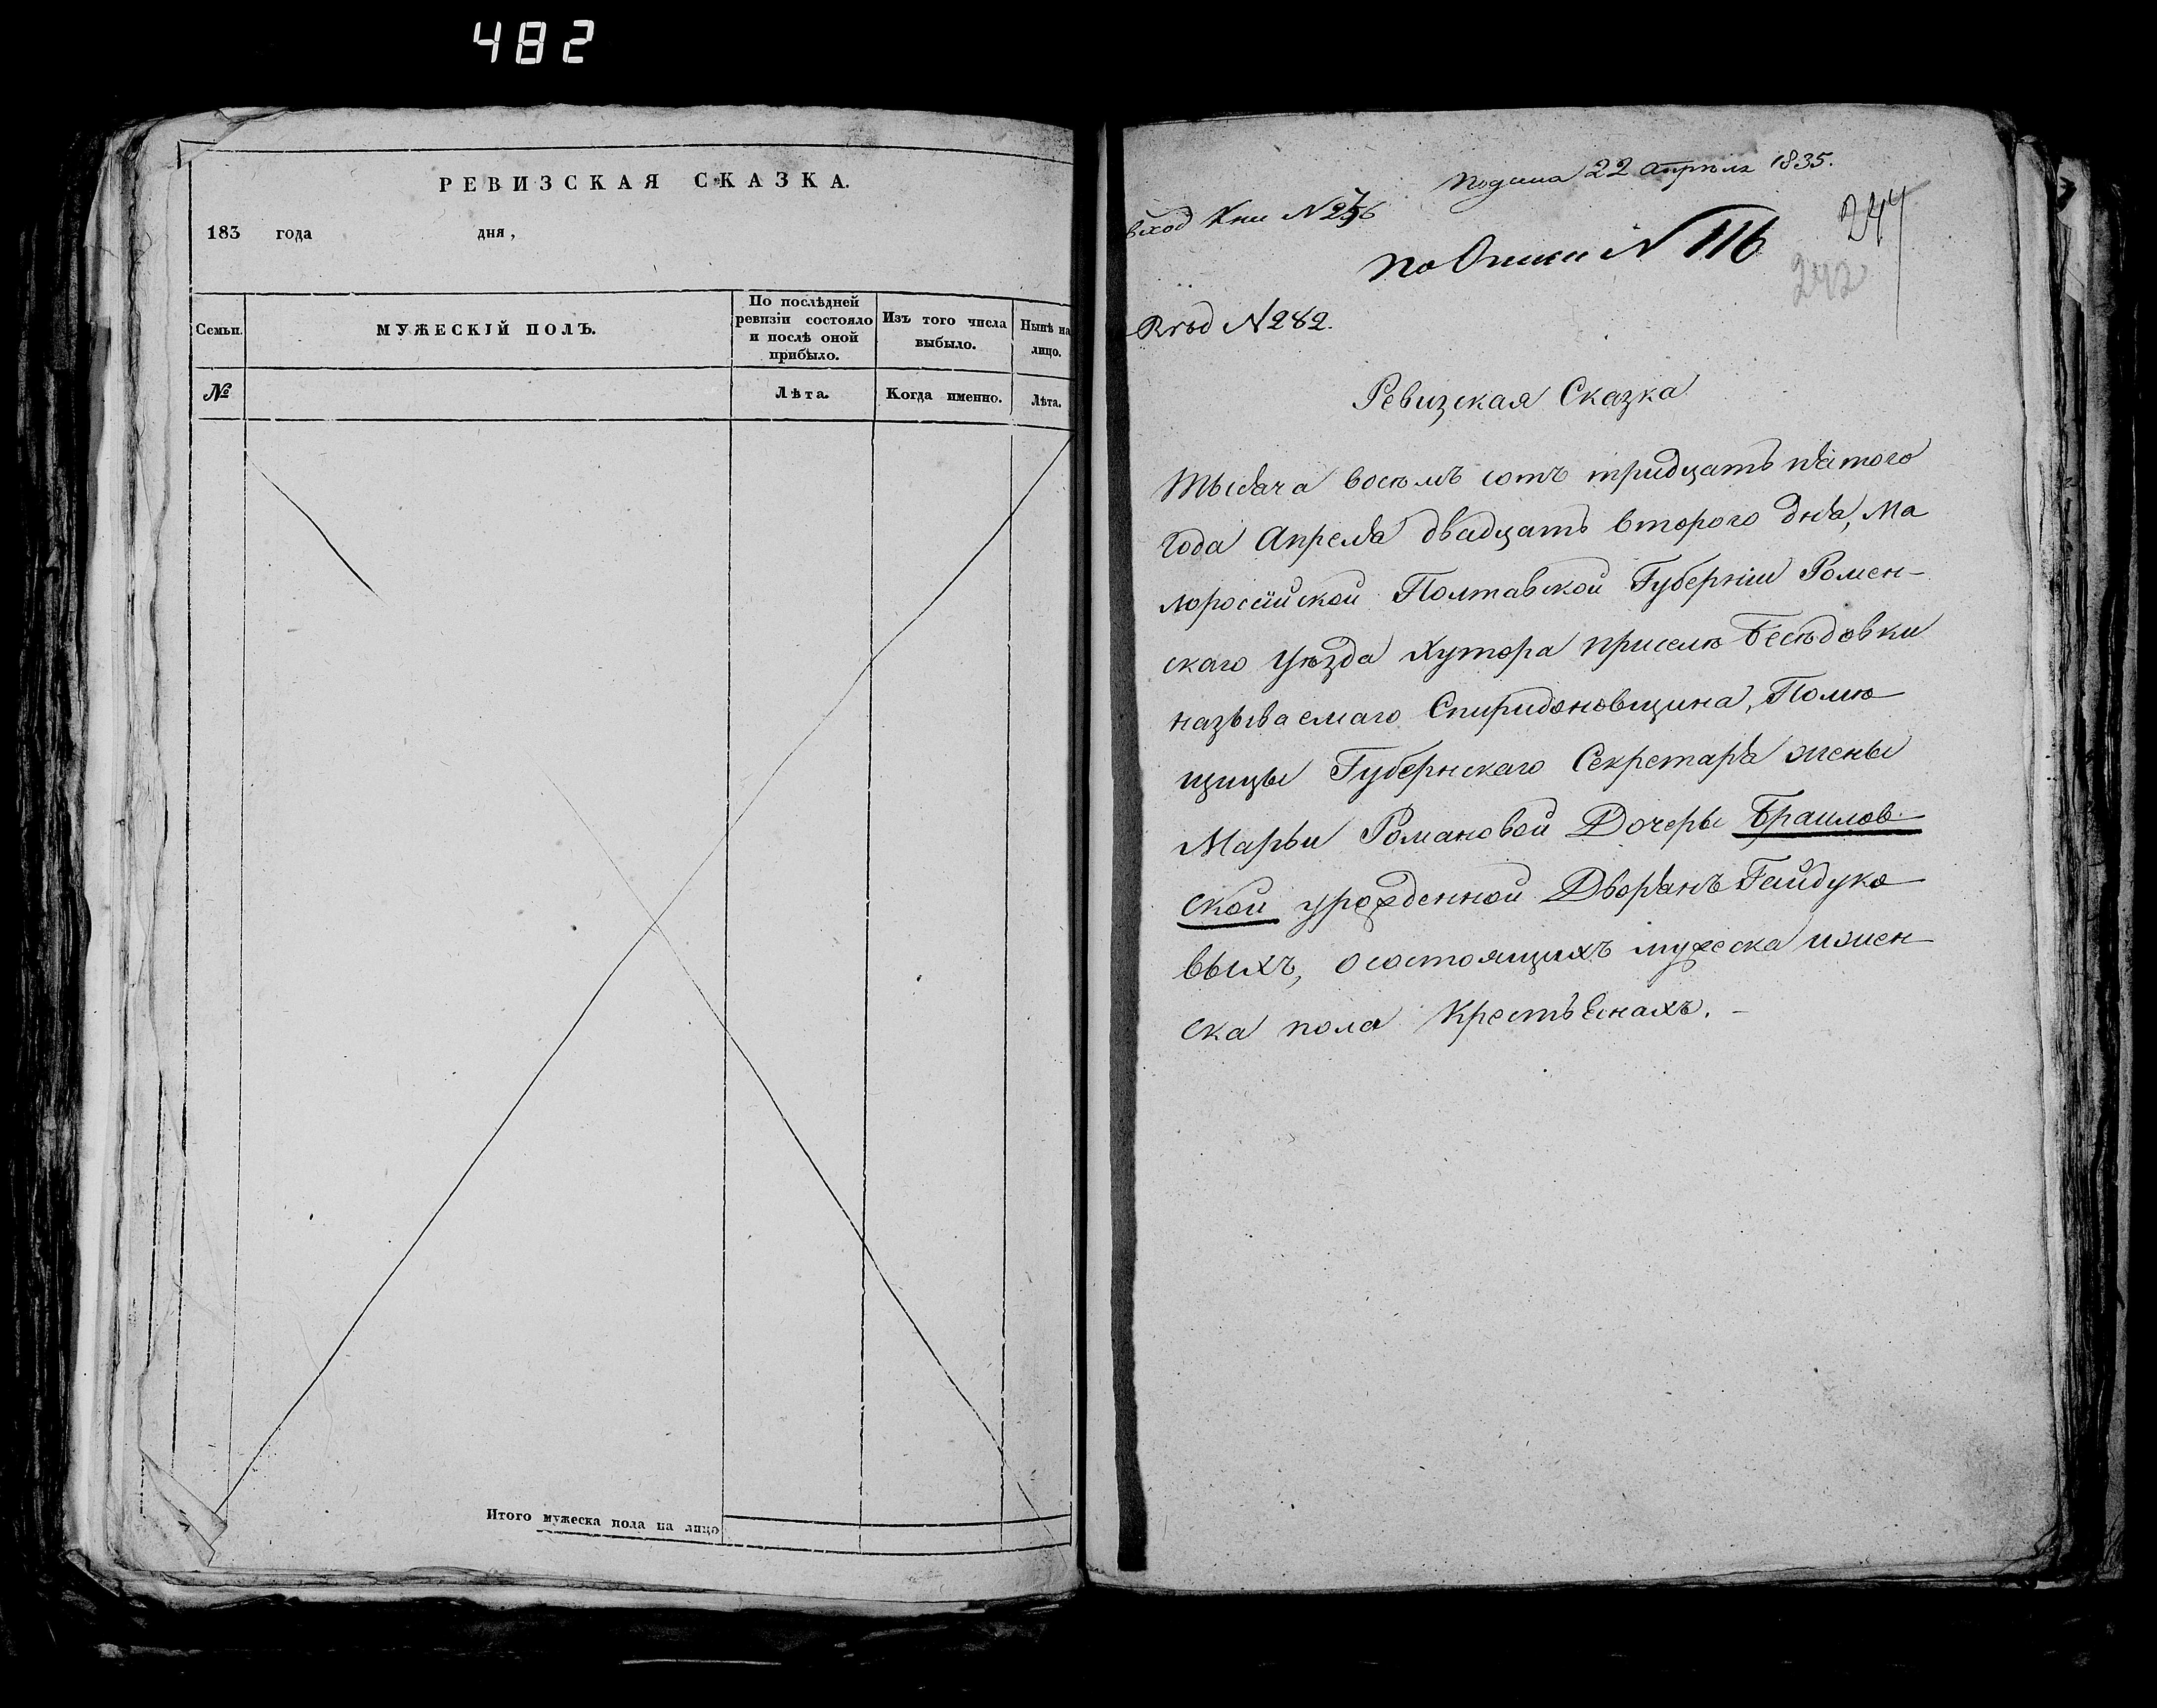 482
РЕВИЗСКАЯ СКАЗКА.
183 года дня,
Семьи. МУЖЕСКІЙ ПОЛЪ. По послѣдней ревизіи состояло и послѣ оной прибыло. Изъ того числа выбыло. Нынѣ на лицо.
№ Лѣта. Когда именно. Лѣта.
Итого мужеска пола на лицо
Подана 22 апрѣля 1835.
вход Кни N
по Описи N 116
244
242
N 282.
Ревизская Сказка
Тысяча восемъ сотъ тридцать пятого
Года Апреля двадцать второго дня, Ма
лороссійской Полтавской Губерніи Ромен-
скаго уѣзда Хутора приселѣ Бесѣдовки
называемаго Спиридоновщина, Помѣ
щицы Губернскаго Секретаря жены
Марьи Романовой Дочеры Браилов
ской урожденной Дворянъ Гайдуко
выхъ, осостоящихъ мужеска ижен
ска пола Крестьянахъ. -